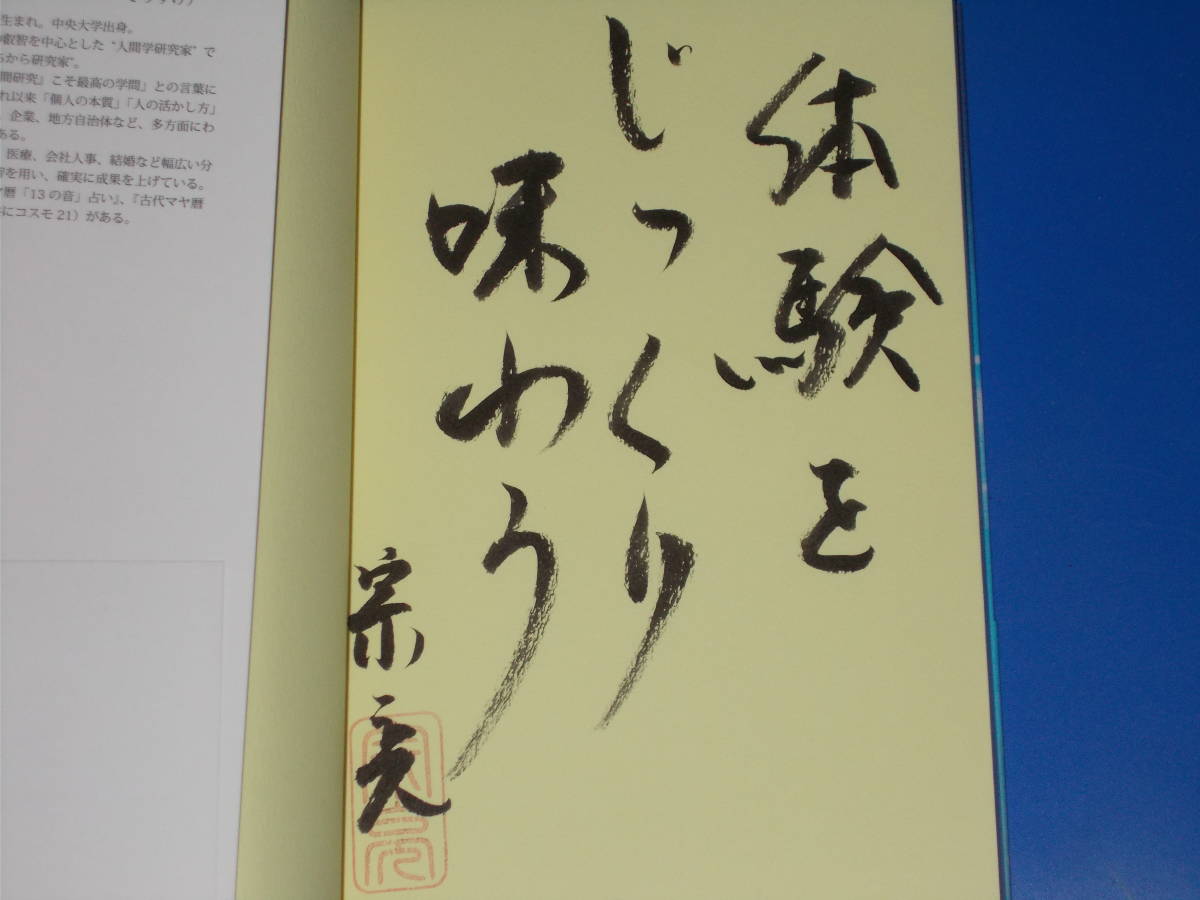 体験を
じっくり
味わう
宗亮
生まれ。中央大学出身。
叡智を中心とした“人間学研究家”で
から研究家”。
間研究』こそ最高の学問」との言葉に
れ以来「個人の本質」「人の活かし方」
、企業、地方自治体など、多方面にわ
ある。
医療、会社人事、結婚など幅広い分
を用い、確実に成果を上げている。
暦「13の音」占い』、『古代マヤ暦
にコスモ21）がある。